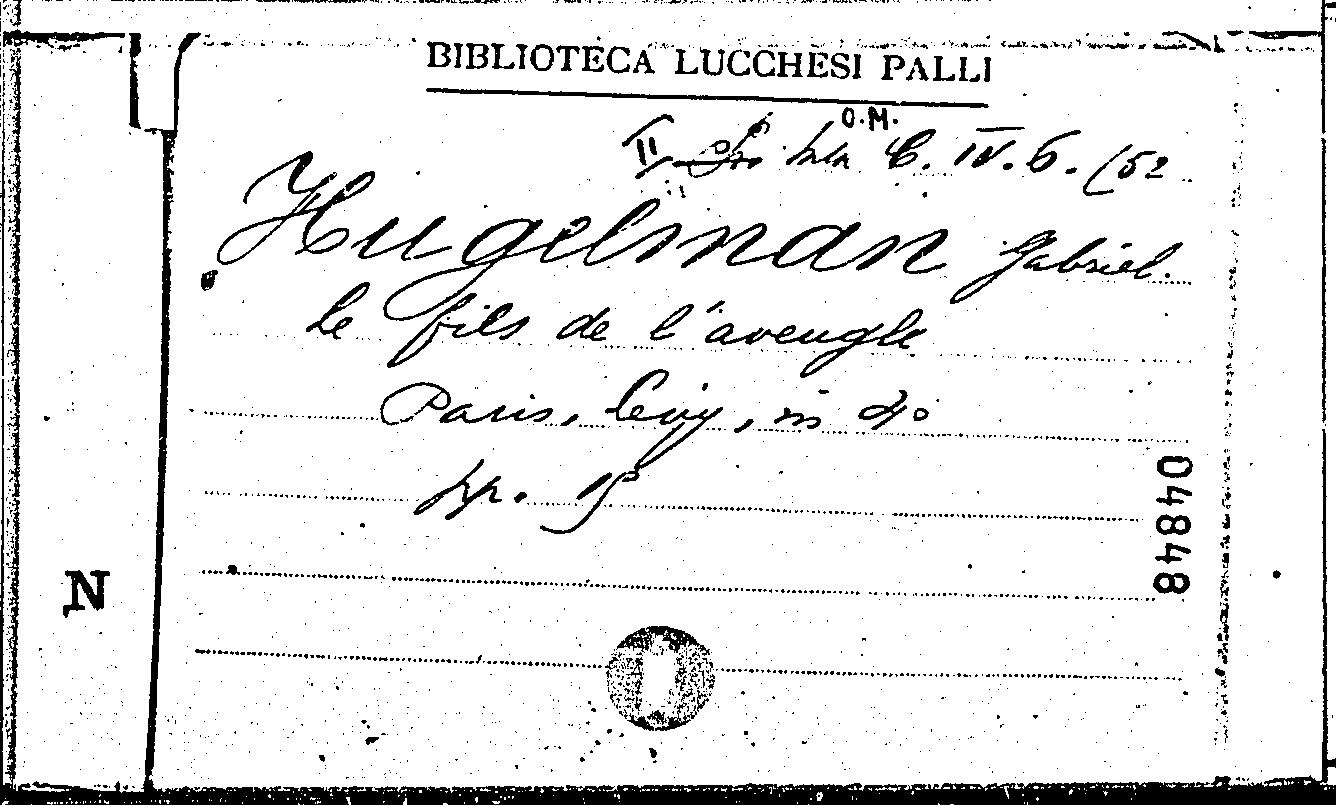 BIBLIOTECA LUCCHESI PALLI
O.M.
II C. IV. 6. (52
Hugelman Gabriel.
Le fils de l'aveugle
Paris, Levy, in 4º
pp. 15
04848
N